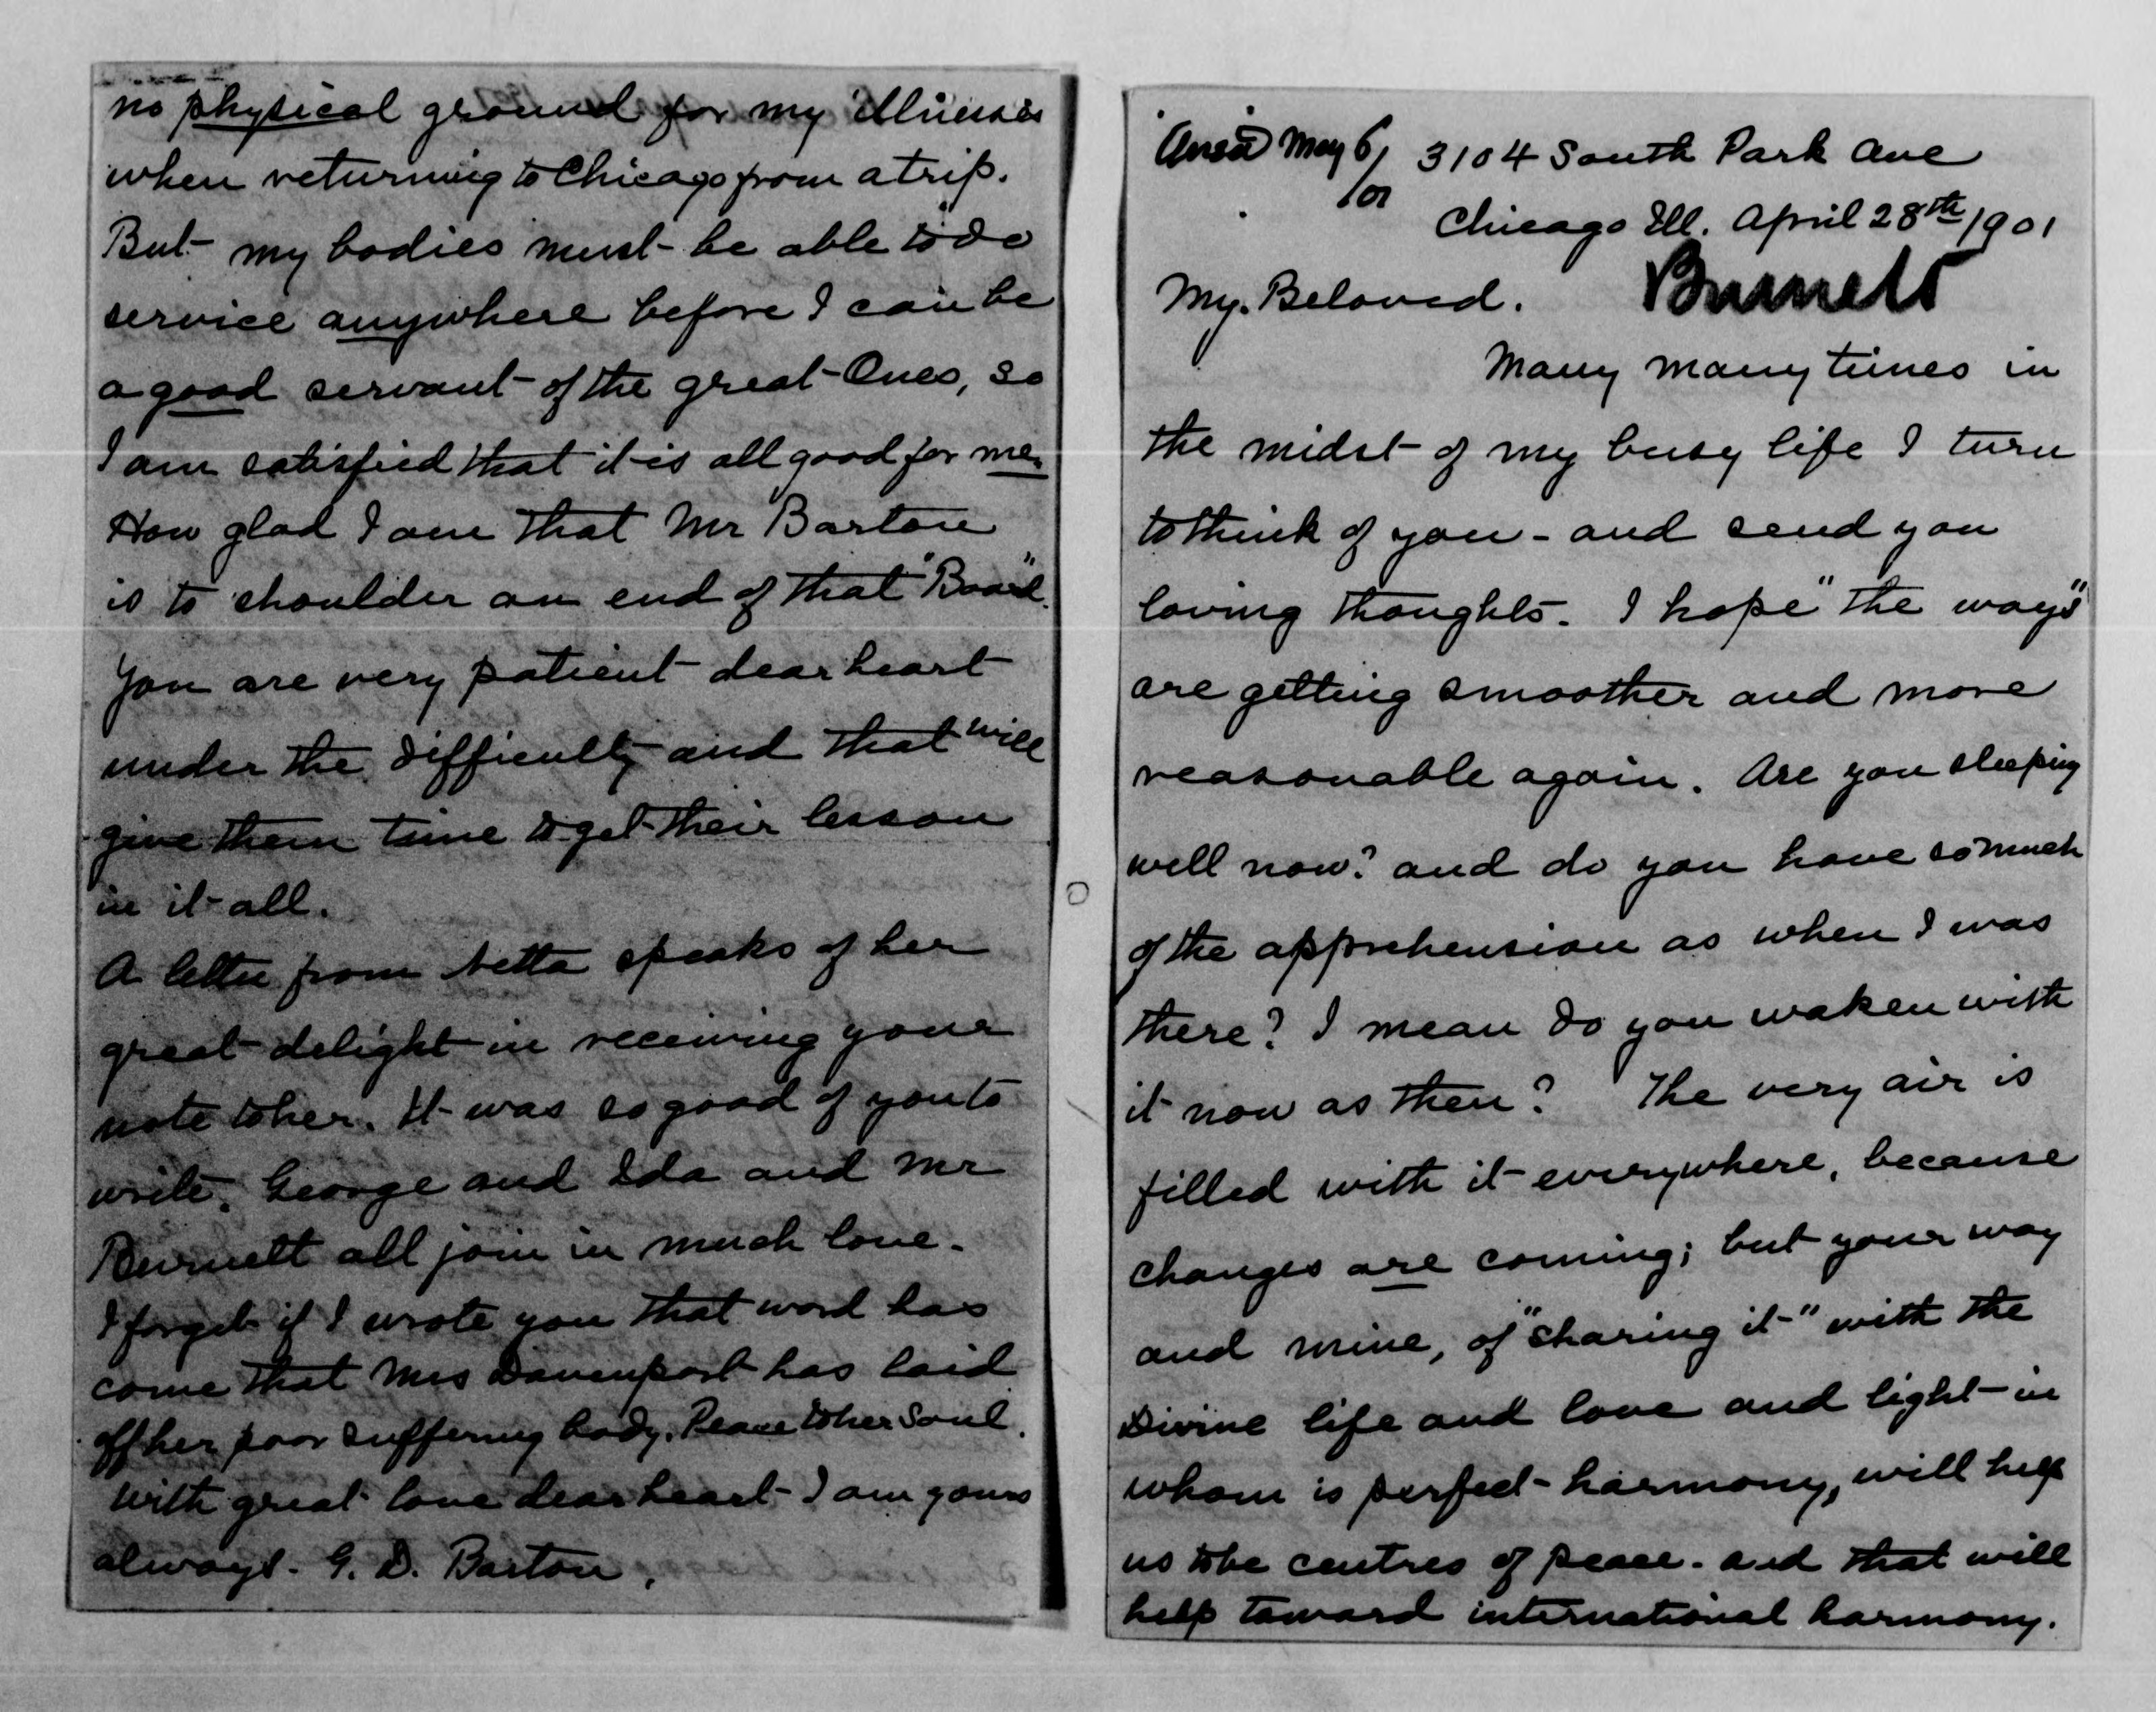 no physical ground for my illnesses
when returning to Chicago from a trip.
But my bodies must be able to do
service anywhere before I can be
a good servant of the great Ones, so
I am satisfied that it is all good for me.
How glad I am that Mr Barton
is to shoulder an end of that "Board".
You are very patient dear heart
under the difficulty and that will
give them time to get their lesson
in it all.
A letter from Netta speaks of her
great delight in receiving your
note to her. It was so good of you to
write. George and Ida and Mr
Burnett all join in much love.
I forget if I wrote you that word has
come that Mrs Davenport has laid
off her poor suffering body. Peace to her Soul.
With great love dear heart I am yours
always. G. D. Barton.
Ansd May 6/01
3104 South Park Ave
Chicago Ill. April 28th/1901
Burnett
My Beloved.
Many many times in
the midst of my busy life I turn
to think of you - and send you
loving thoughts. I hope "the ways"
are getting smoother and more
reasonable again. Are you sleeping
well now? and do you have so much
of the apprehension as when I was
there? I mean do you waken with
it now as then? The very air is
filled with it everywhere, because
changes are coming; but your way
and mine, of "sharing it" with the
Divine life and love and light in
whom is perfect harmony, will help
us to be centres of peace. and that will
help toward international harmony.